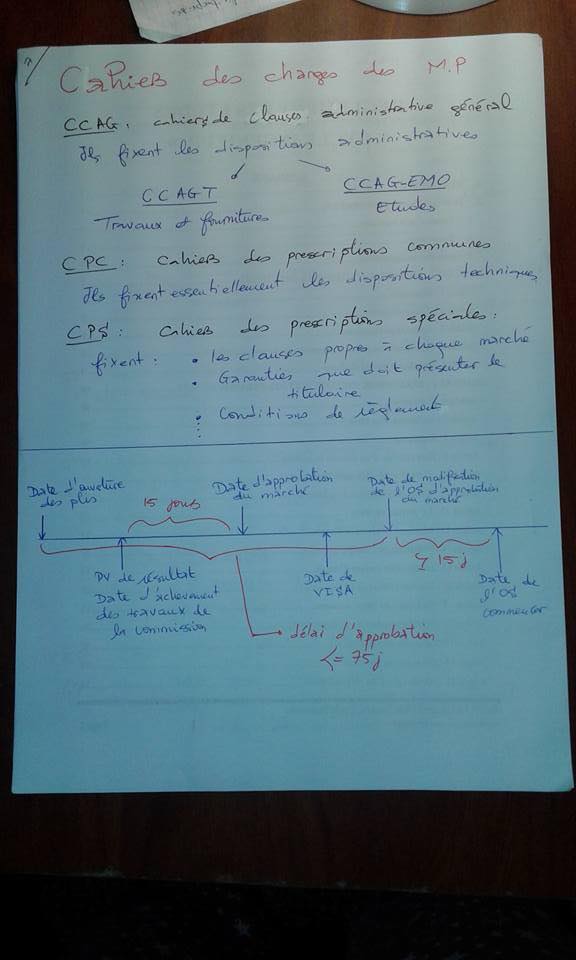 Cahiers des charges des M.P
CCAG : cahiers de clauses administrative général
Ils fixent les dispositions administratives
CCAGT
CCAG-EMO
Travaux et fournitures
Etudes
CPC : Cahiers des prescriptions communes
Ils fixent essentiellement les dispositions techniques
CPS : Cahiers des prescriptions spéciales :
fixent : • les clauses propres à chaque marché
• Garanties que doit présenter le
titulaire
• Conditions de règlement
Date d'ouverture
des plis
15 jours
Date d'approbation
du marché
Date de notification
de l'OS d'approbation
du marché
PV de résultat
Date d'achèvement
des travaux de
la commission
Date de
VISA
15j
Date de
l'OS
commencer
délai d'approbation
<= 75j